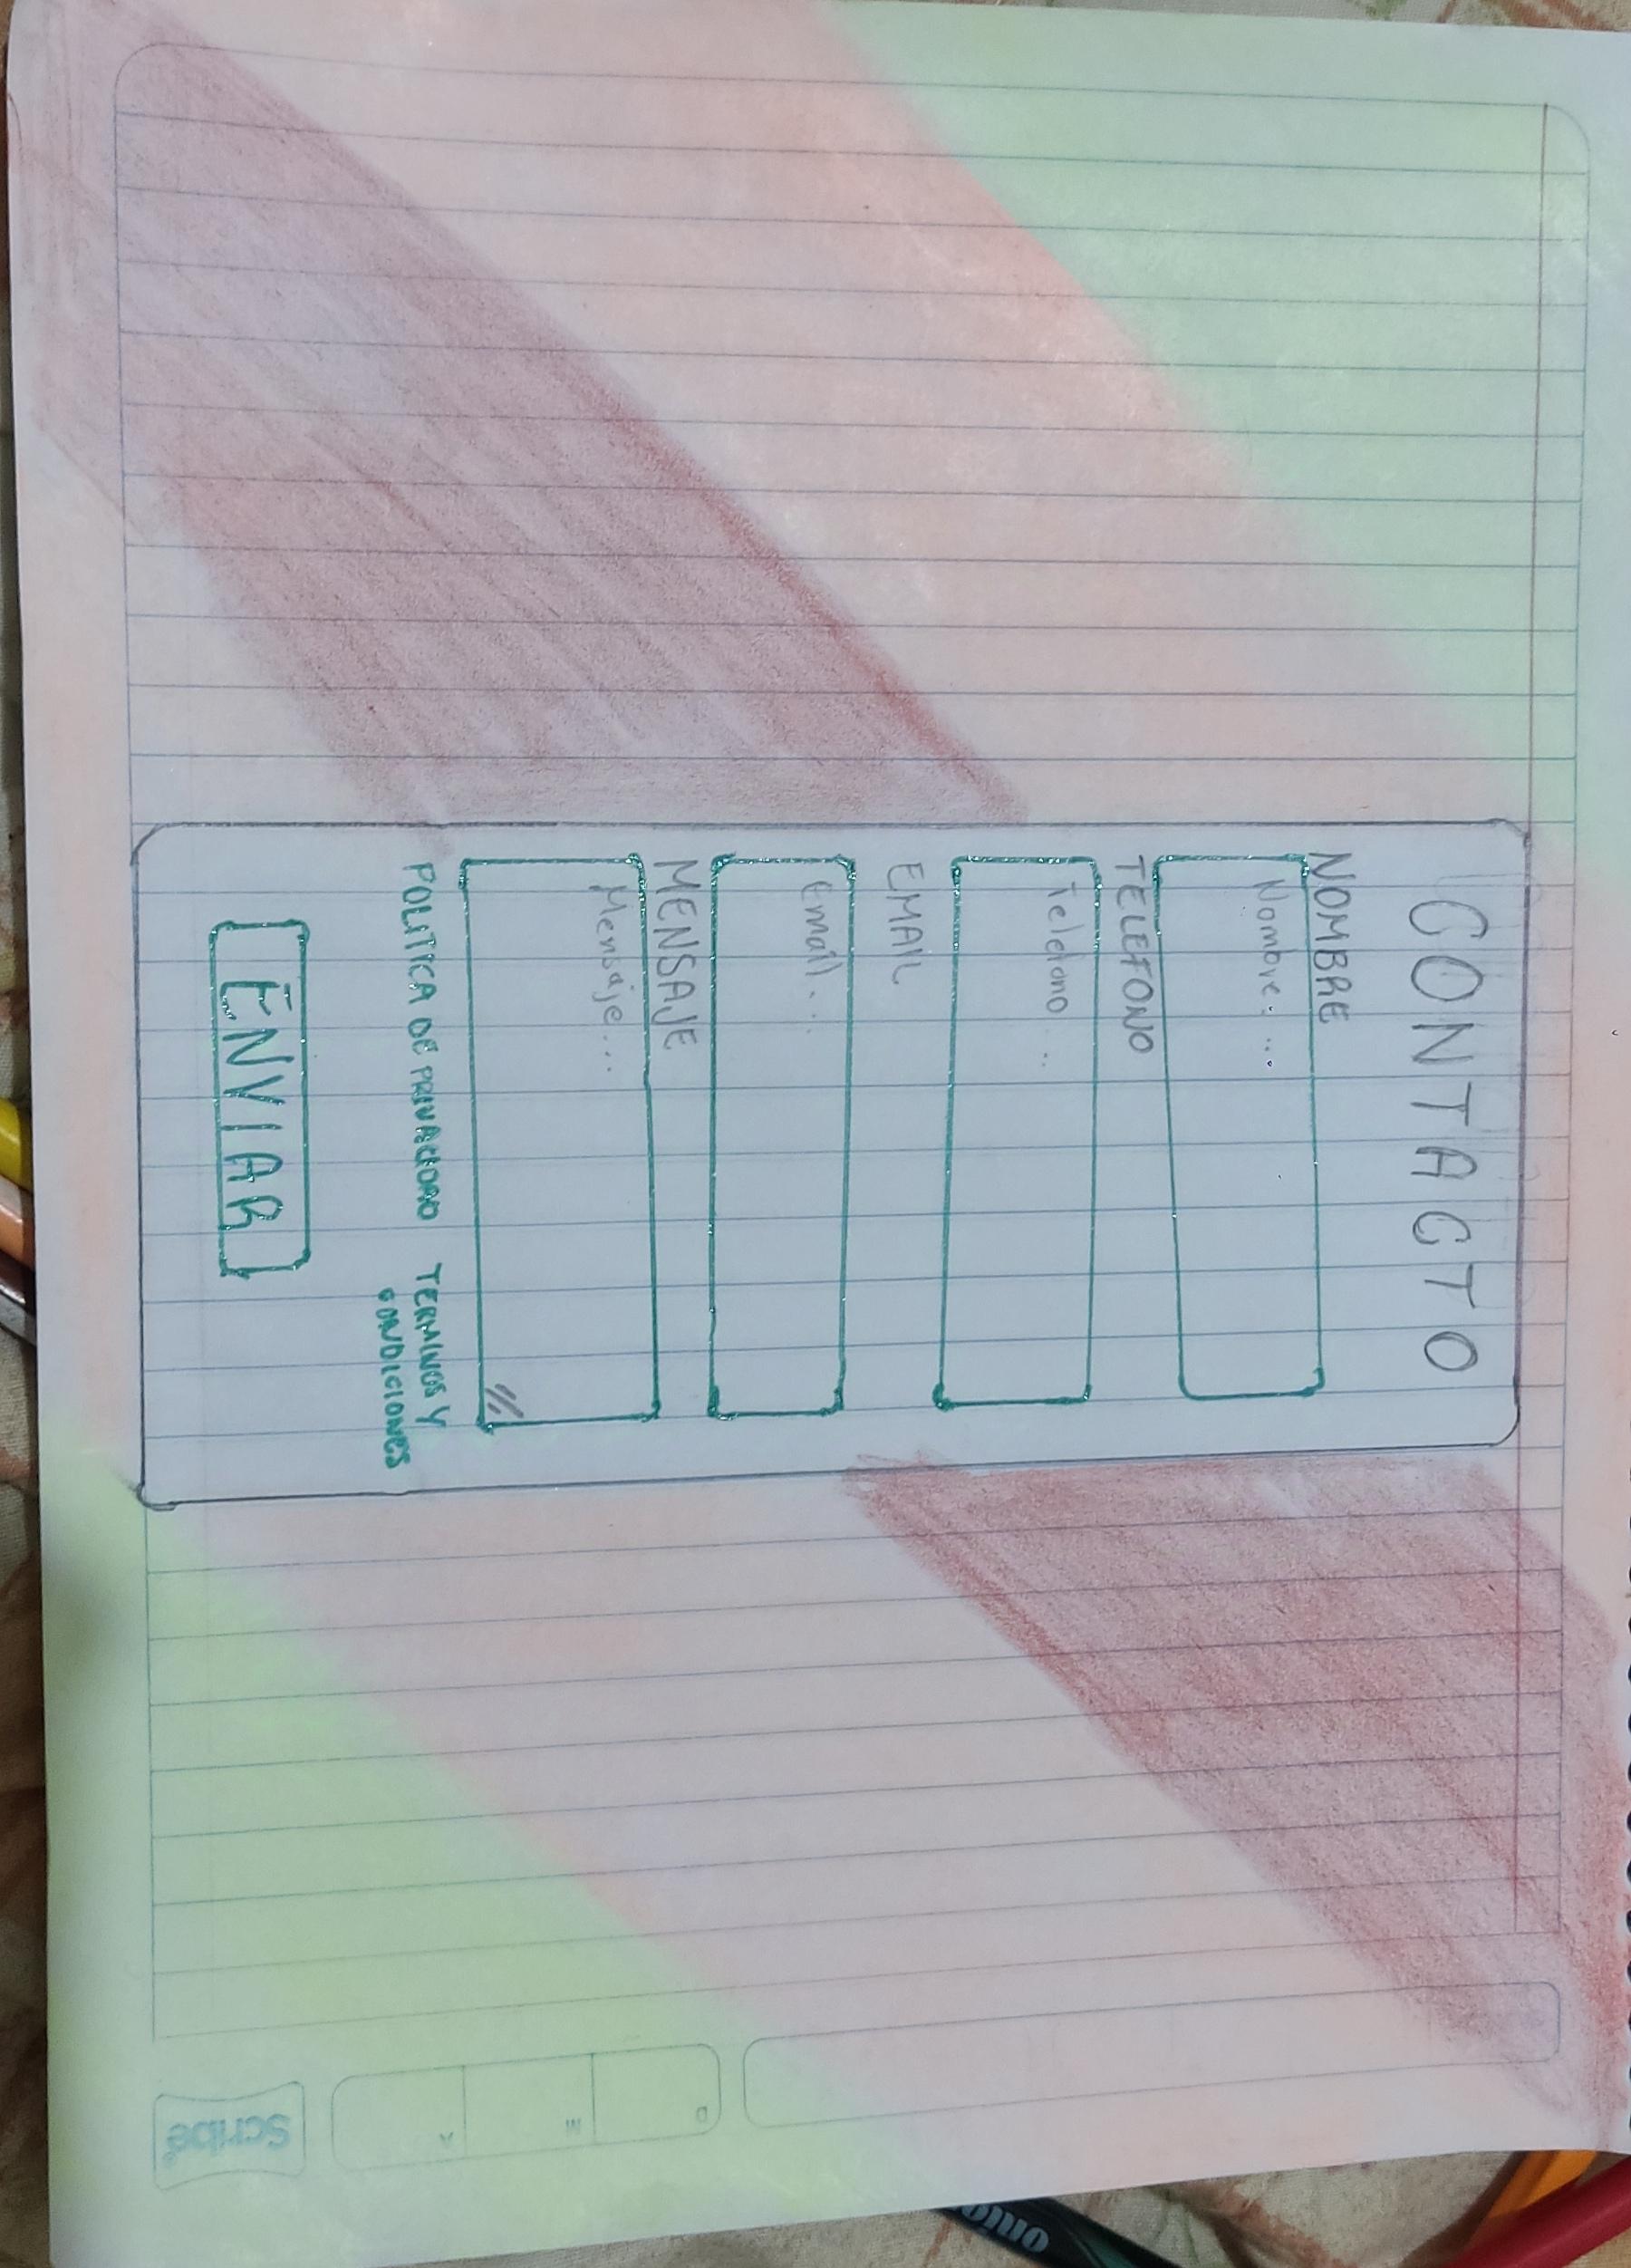 CONTACTO
NOMBRE
Nombre...
TELEFONO
Telefono...
EMAIL
Email...
MENSAJE
Mensaje...
POLITICA DE PRIVACIDAD TERMINOS Y
CONDICIONES
ENVIAR
Scribe